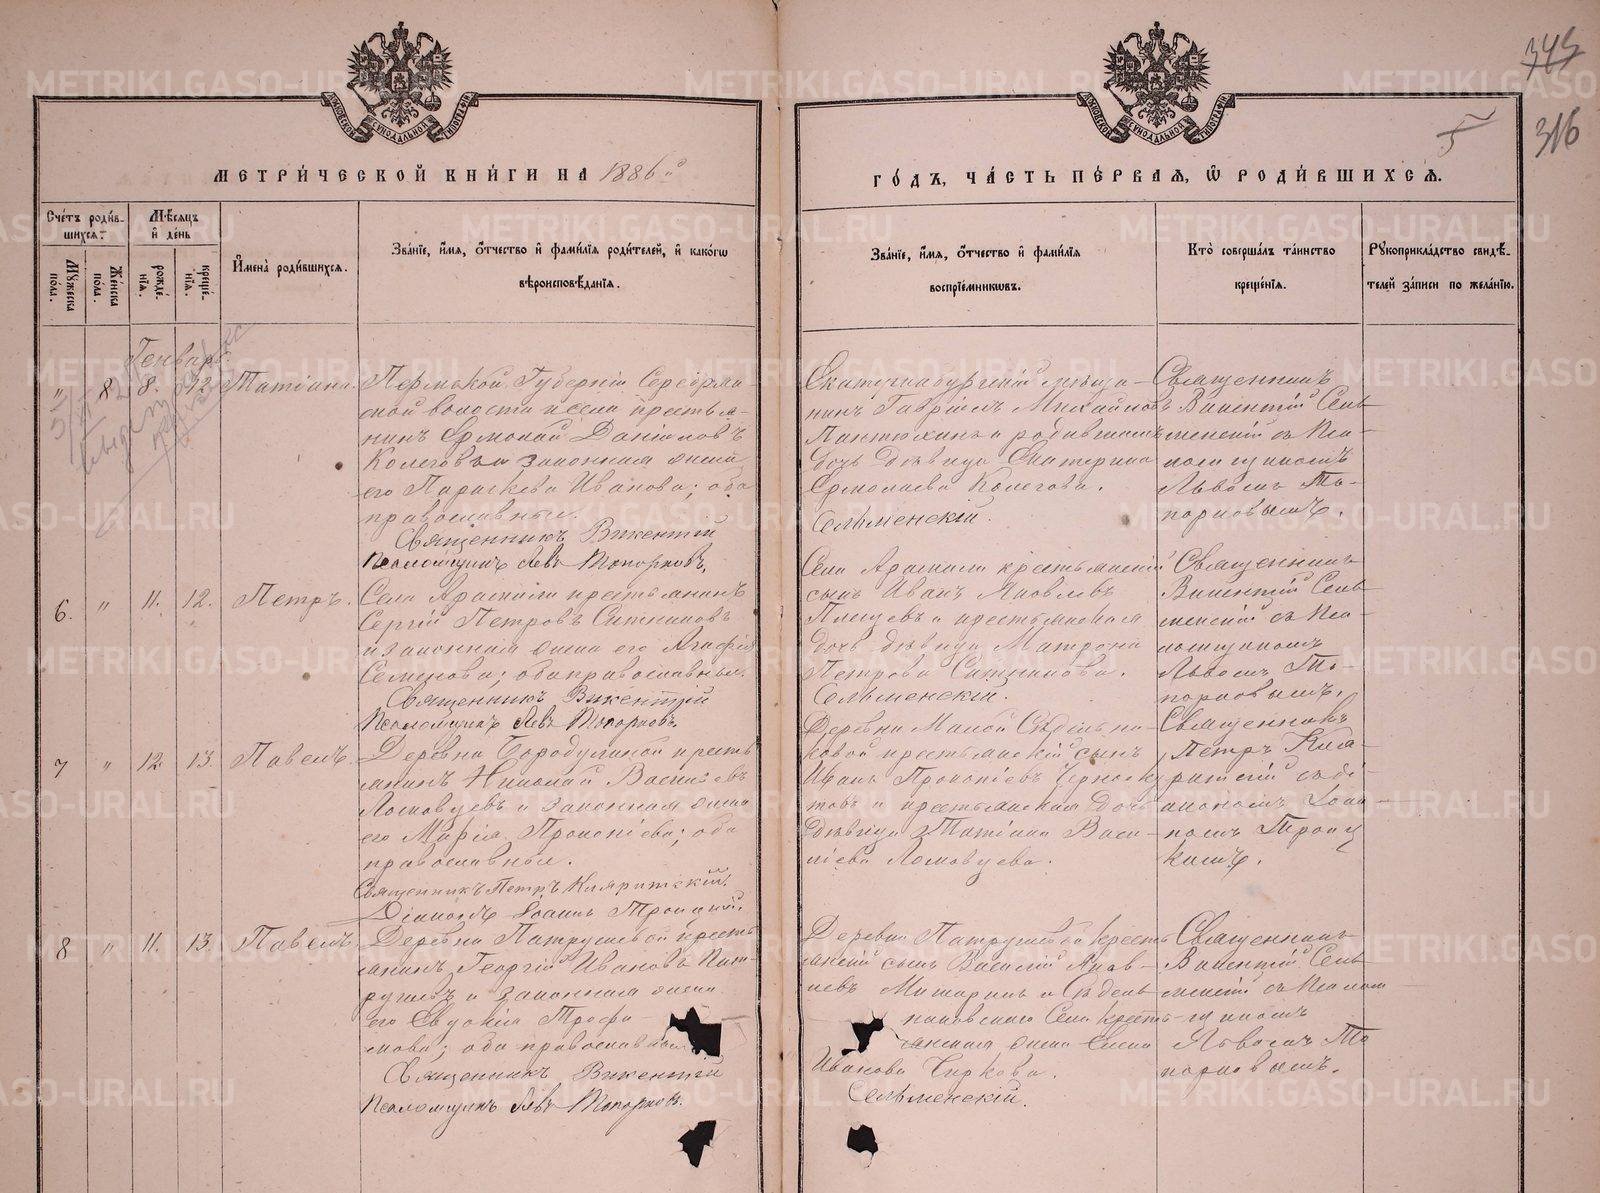 343
316
5
МОСКОВСКОЙ СѴНОДАЛЬНОЙ ТИПОГРАФІИ
МОСКОВСКОЙ СѴНОДАЛЬНОЙ ТИПОГРАФІИ
МЕТРИ́ЧЕСКОЙ КНИ́ГИ НА 1886й
ГО́ДЪ, ЧА́СТЬ ПЕ́РВАЯ, Ѿ РОДИ́ВШИХСѦ.
Сче́тъ роди́в-
шихся:
Мꙋжеска пола.
Же́нска пола.
Мѣ́сяцъ
и҆ де́нь
рожде́нїя.
креще́нїя.
И҆мена̀ роди́вшихся.
Зва́нїе, и҆́мя, ѻ҆́тчество и҆ фами́лїя роди́телей, и҆ како́гѡ
вѣроисповѣ́данїя.
Зва́нїе, и҆́мя, ѻ҆́тчество и҆ фами́лїя
воспрїе́мникѡвъ.
Кто̀ соверша́лъ та́инство
креще́нїя.
Рꙋкоприкла́дство свидѣ́-
телей за́писи по жела́нїю.
Генварь.
" 8 8. 12. Татіана.
Пермской Губерніи Серебрян-
ской волости и села крестья-
нинъ Ермолай Даніиловъ
Колеговъ и законная жена
его Параскева Иванова; оба
православные.
Священникъ Викентій
Псаломщикъ Левъ Топорковъ.
Екатеринбургскій мѣща-
нинъ Гавріилъ Михайловъ
Пантюхинъ и родившимъ
дочь дѣвица Екатерина
Ермолаева Колегова.
Сельменскій.
Священникъ
Викентій Сель-
менскій съ Пса-
ломщикомъ
Львомъ То-
порковымъ.
6. " 11. 12. Петръ.
Села Арамили крестьянинъ
Сергій Петровъ Ситниковъ
и законная жена его Агафія
Семенова; оба православные.
Священникъ Викентій
Псаломщикъ Левъ Топорковъ.
Села Арамили крестьянскій
сынъ Иванъ Яковлевъ
и крестьянская
дочь дѣвица Матрона
Петрова Ситникова.
Сельменскій.
Священникъ
Викентій Сель-
менскій съ Пса-
ломщикомъ
Львомъ То-
порковымъ.
7 " 12. 13. Павелъ.
Деревни Бородулиной кресть-
янинъ Николай Васильевъ
Ломовцевъ и законная жена
его Марія Прокопіева; оба
православные.
Священникъ Петръ Киляритскій.
Діаконъ Іоаннъ Троицкій.
Деревни Малой Сѣдельни-
ковой крестьянскій сынъ
Иванъ Прокопіевъ Черноску-
товъ и крестьянская дочь
дѣвица Татіана Васи-
ліева Ломовцева.
Священникъ
Петръ Киля-
ритскій съ ді-
акономъ Іоан-
номъ Троиц
кимъ.
8 " 11. 13. Павелъ.
Деревни Патрушевой кресть
янинъ Георгій Ивановъ Пат-
рушевъ и законная жена
его Евдокія Трофи-
мова; оба православные.
Священникъ Викентій
Псаломщикъ Левъ Топорковъ.
Деревни Патрушевой кресть
янскій сынъ Василій
и Сѣдель-
никовскаго Села кресть-
янская жена Елена
Иванова Чиркова.
Сельменскій.
Священникъ
Викентій Сель
менскій съ Псалом
щикомъ
Львомъ То
порковымъ.
METRIKI.GASO-URAL.RU